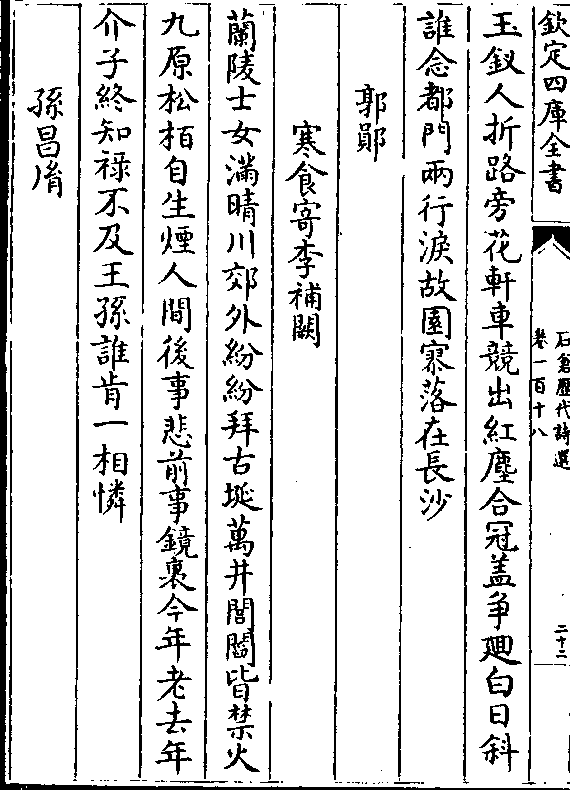 欽定四庫全書
石倉歷代詩選
卷一百十八
二十二
玉釵人折路旁花軒車競出紅塵合冠盖争廻白日斜
誰念都門兩行淚故園寥落在長沙
郭鄖
寒食寄李補闕
蘭陵士女滿晴川郊外紛紛拜古埏萬井閭閻皆禁火
九原松栢自生煙人間後事悲前事鏡裏今年老去年
介子終知祿不及王孫誰肯一相憐
孫昌胤